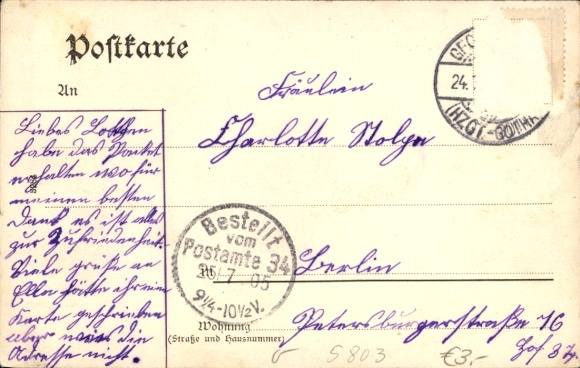 Postkarte
An
Fräulein
Charlotte Stolpe
Berlin
Petersburgerstraße 76
Hof 3 Tr.
Wohnung
(Straße und Hausnummer)
Liebes Lottchen
habe das Packet
erhalten wofür
meinen besten
Dank es ist alles
zur Zufriedenheit.
Viele grüße an
Ella hätte ihr eine
Karte geschrieben
aber weis die
Adresse nicht.
Bestellt
vom
Postamte 34
7. 05
9¼-10½V.
24.
(HZGT. GOTHA)
5803
€3.-